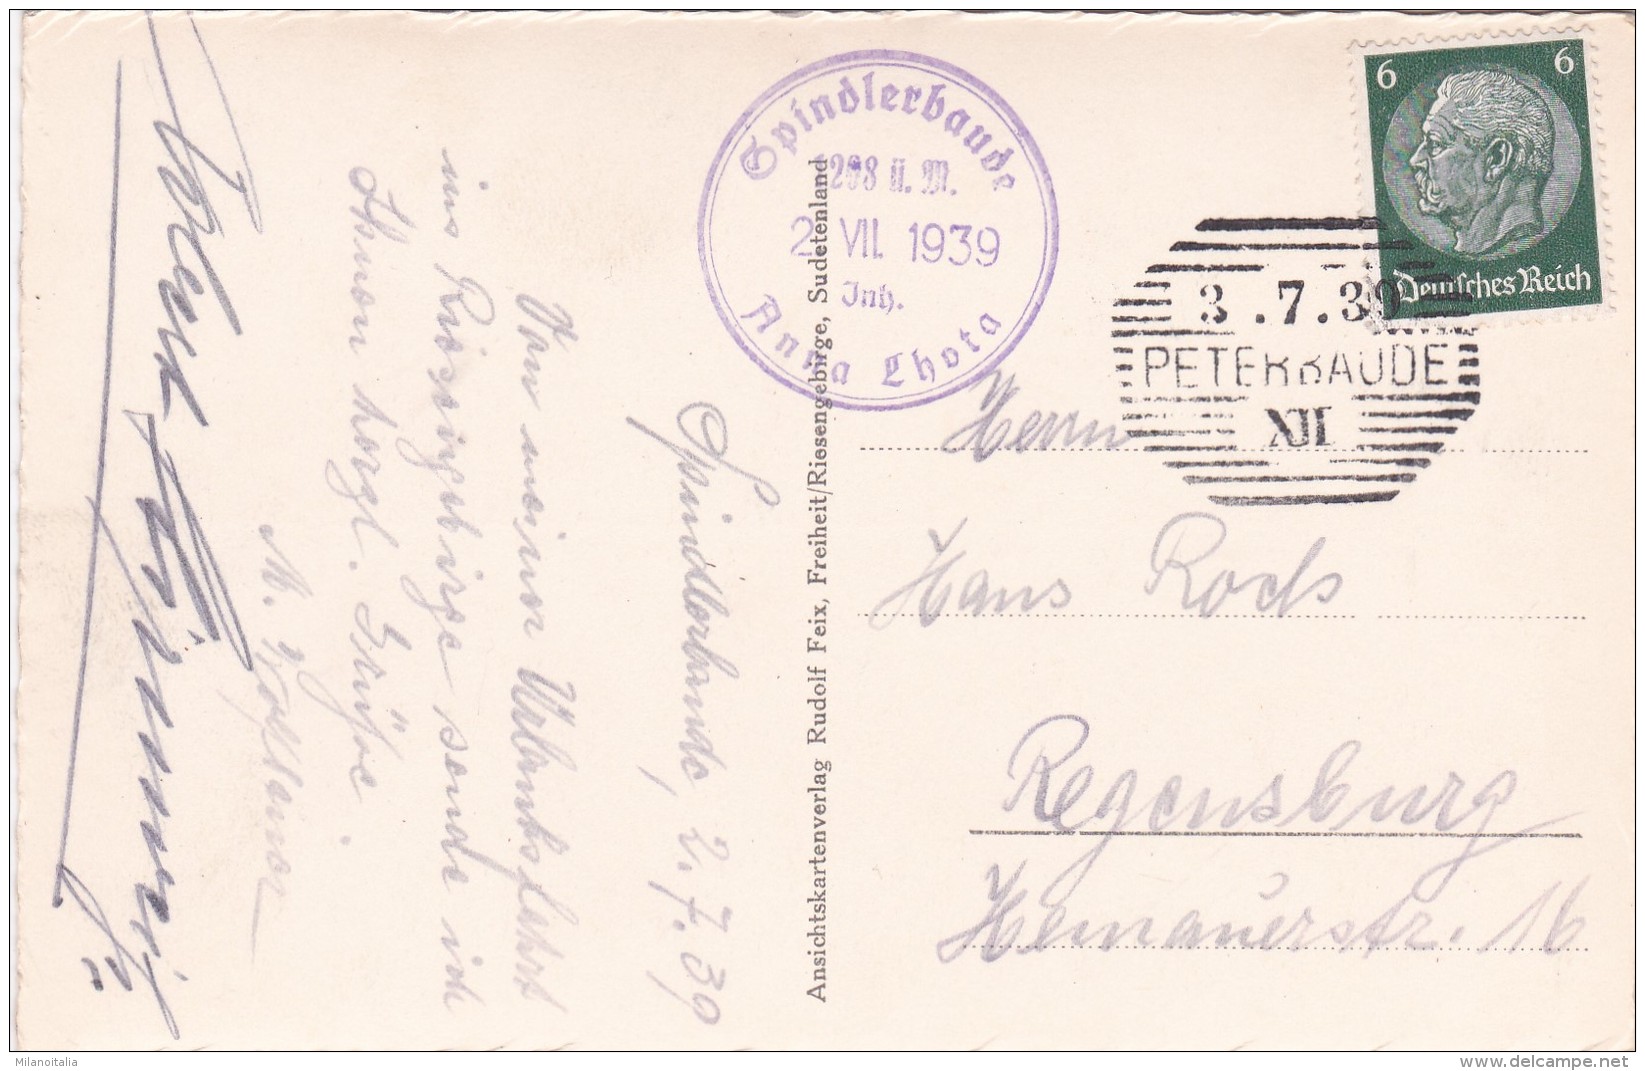 Spindlerbaude, 2. 7. 39
Von meiner Urlaubsfahrt
ins Riesengebirge sende ich
Ihnen herzl. Grüße.
Spindlerbaude
1208 ü. M.
2. VII. 1939
Inh.
Anna Lhota
Ansichtskartenverlag Rudolf Feix, Freiheit/Riesengebirge, Sudetenland
6 6
Deutsches Reich
3.7.39
PETERBAUDE
Herrn
Hans
Regensburg
Hemauerstr. 16
Milanoitalia
www.delcampe.net